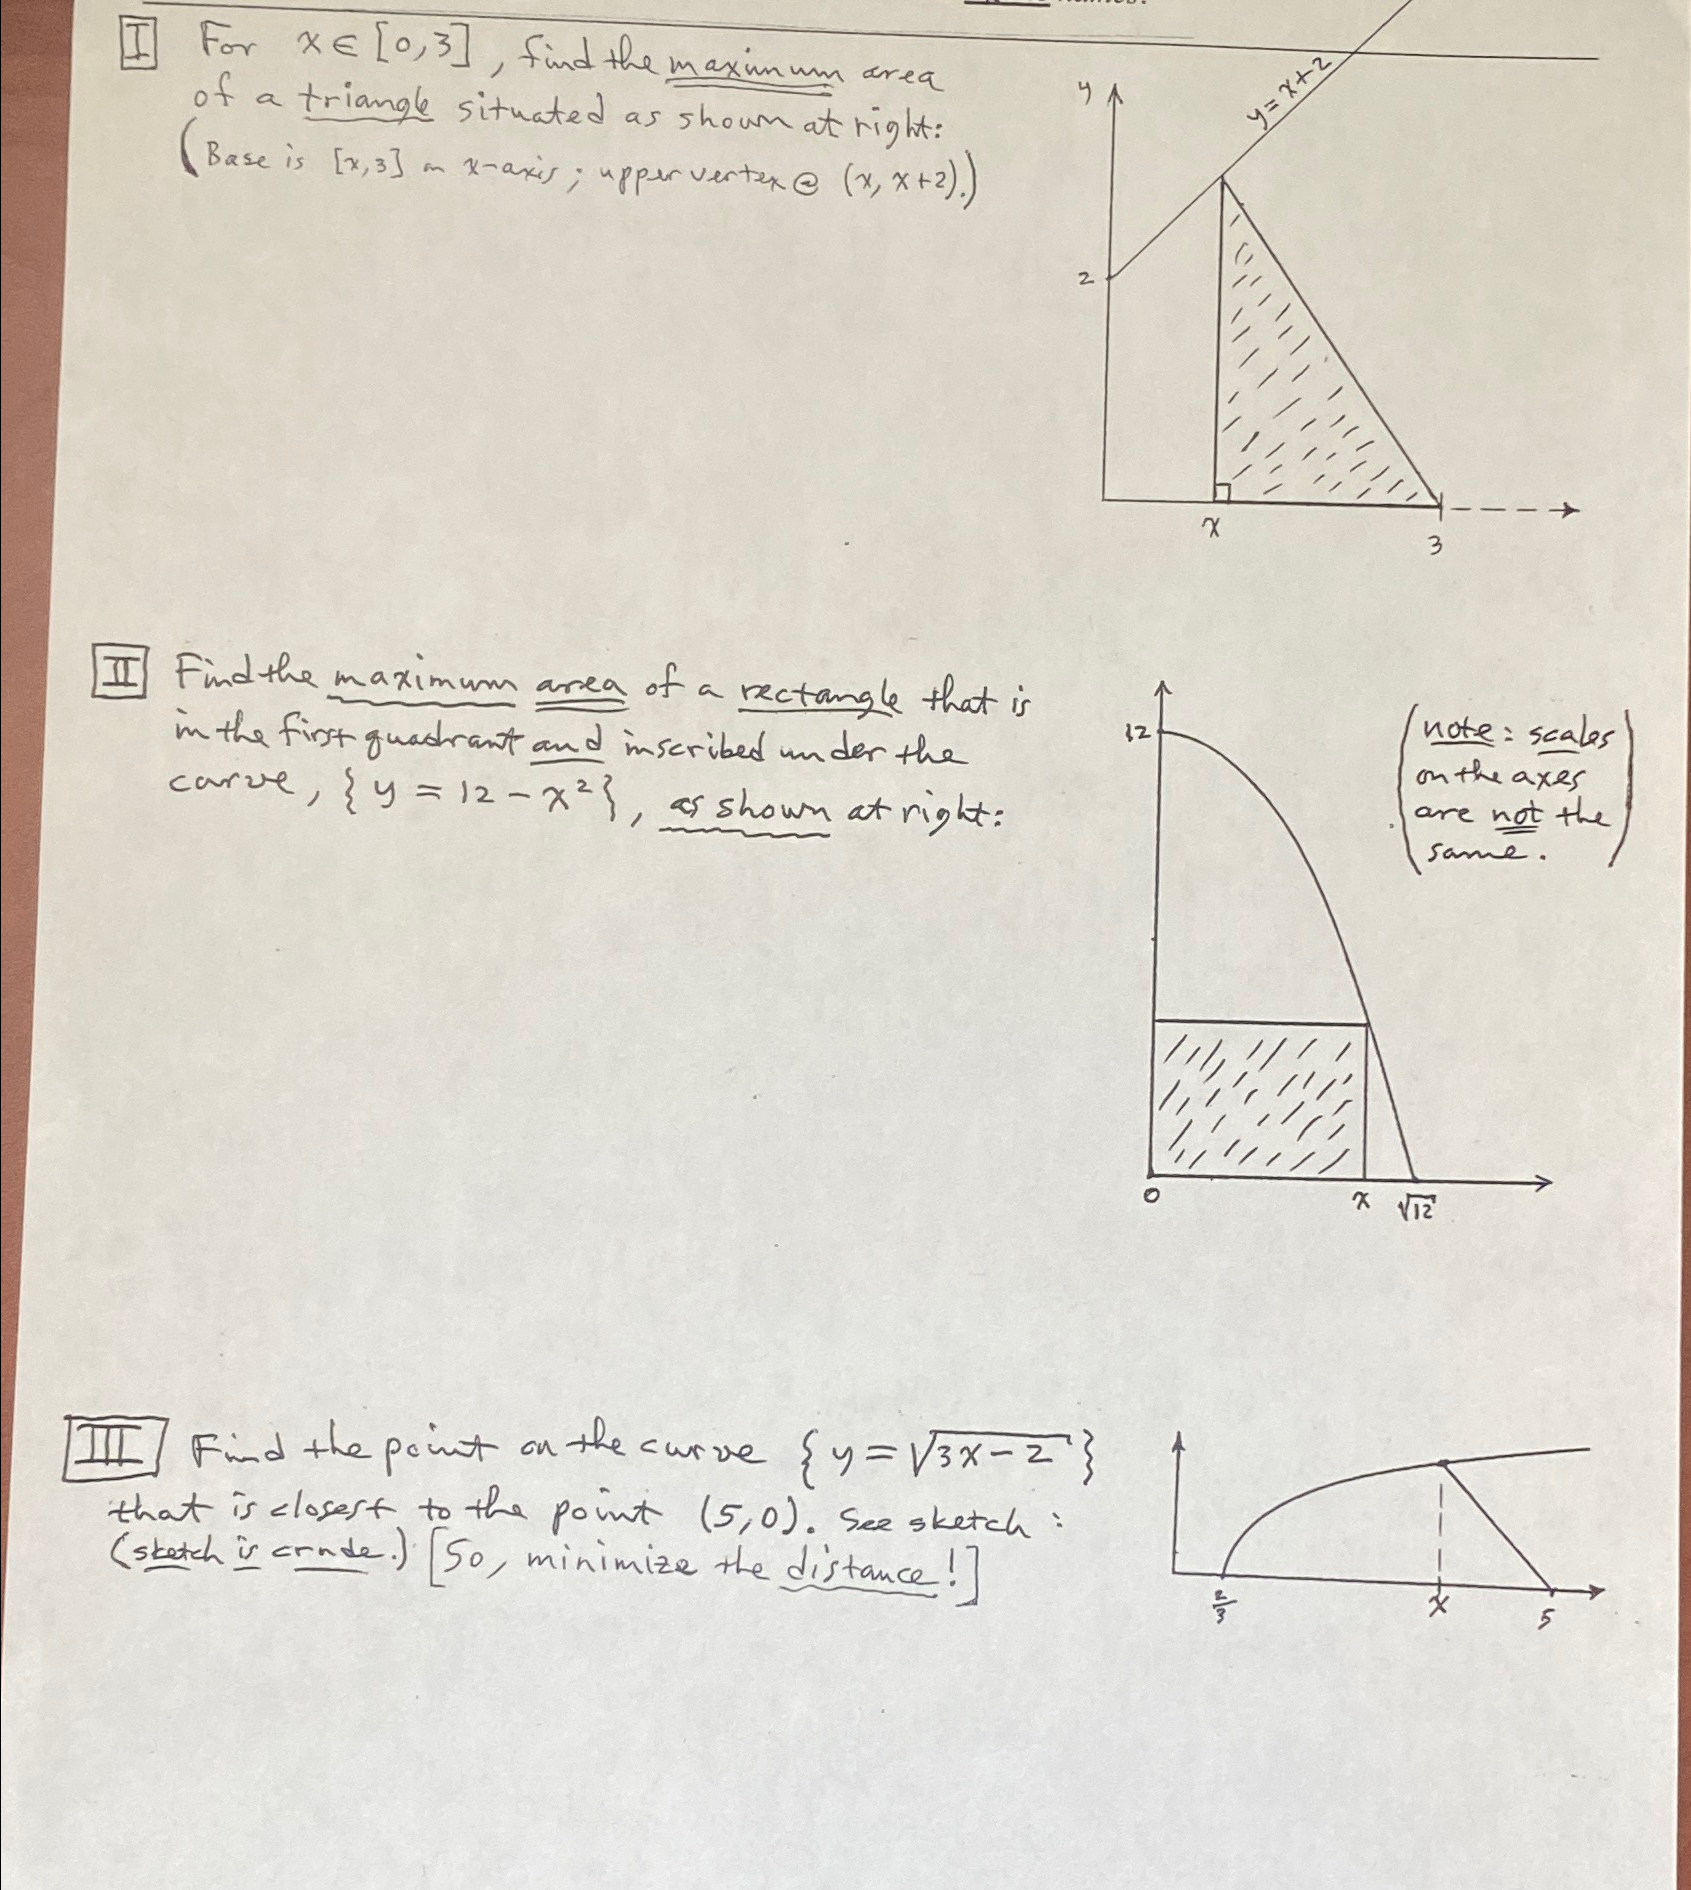 names.
I For x ∈ [0,3], find the maximum area
of a triangle situated as shown at right:
(Base is [x,3] on x-axis; upper vertex @ (x, x+2).)
y
y = x+2
2
x
3
II Find the maximum area of a rectangle that is
in the first quadrant and inscribed under the
curve, {y = 12 - x²}, as shown at right:
12
(note: scales
on the axes
are not the
same.)
0
x
√12
III Find the point on the curve {y = √3x-2}
that is closest to the point (5,0). See sketch:
(sketch is crude.) [So, minimize the distance!]
2/3
x
5